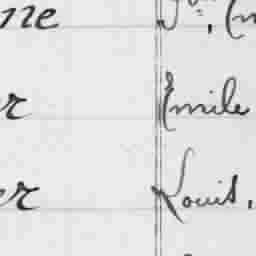 ne
r Emile
er Louis,